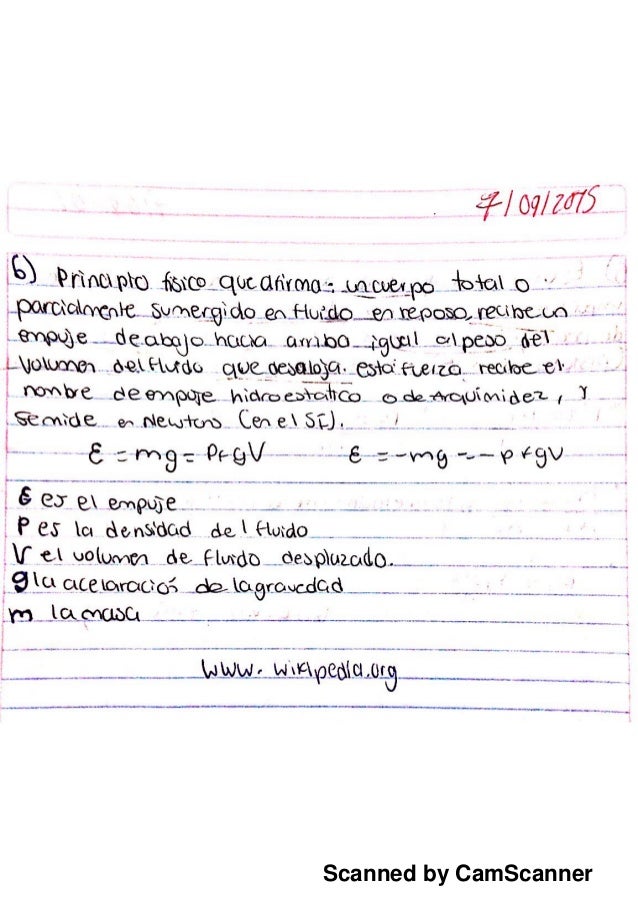 7/09/2015
6) Principio físico que afirma: un cuerpo total o
parcialmente sumergido en fluido en reposo, recibe un
empuje de abajo hacia arriba igual al peso del
volumen del fluido que desaloja. esta fuerza recibe el
nombre de empuje hidroestatico o de Arquímidez, y
se mide en Newtons (en el SI).
E = mg = PfgV E = -mg = -pfgv
E es el empuje
P es la densidad del fluido
V el volumen de fluido desplazado.
g la acelaración de la gravedad
m la masa
www.wikipedia.org
Scanned by CamScanner